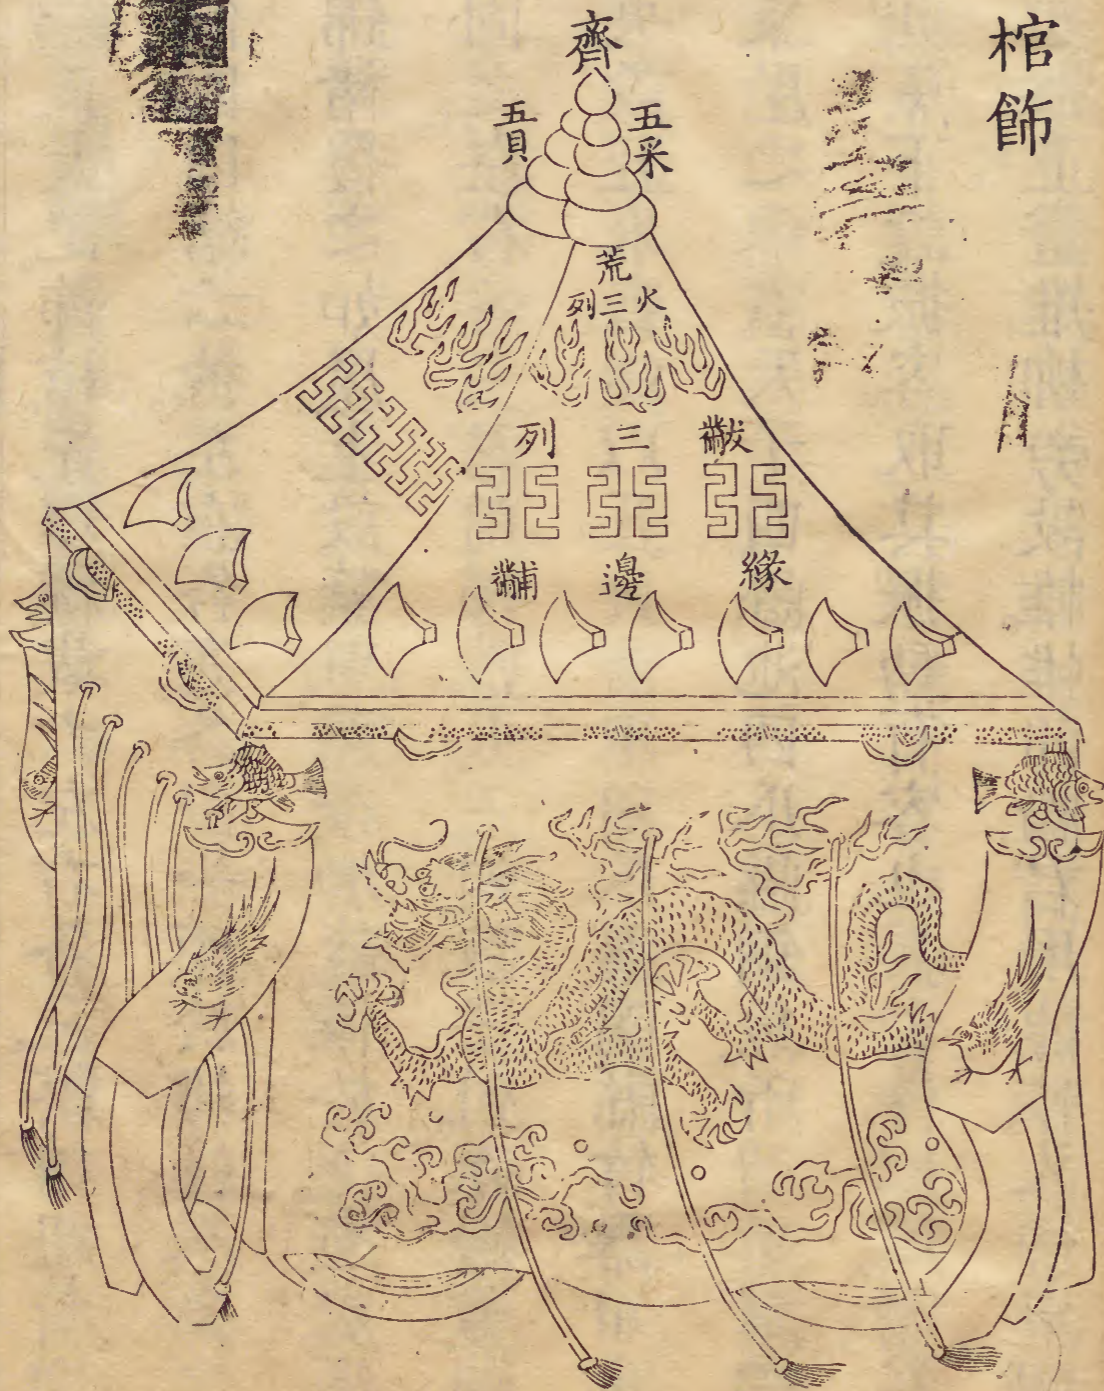 棺飾
齊
五采
五貝
荒
火三列
黻三列
緣邊黼